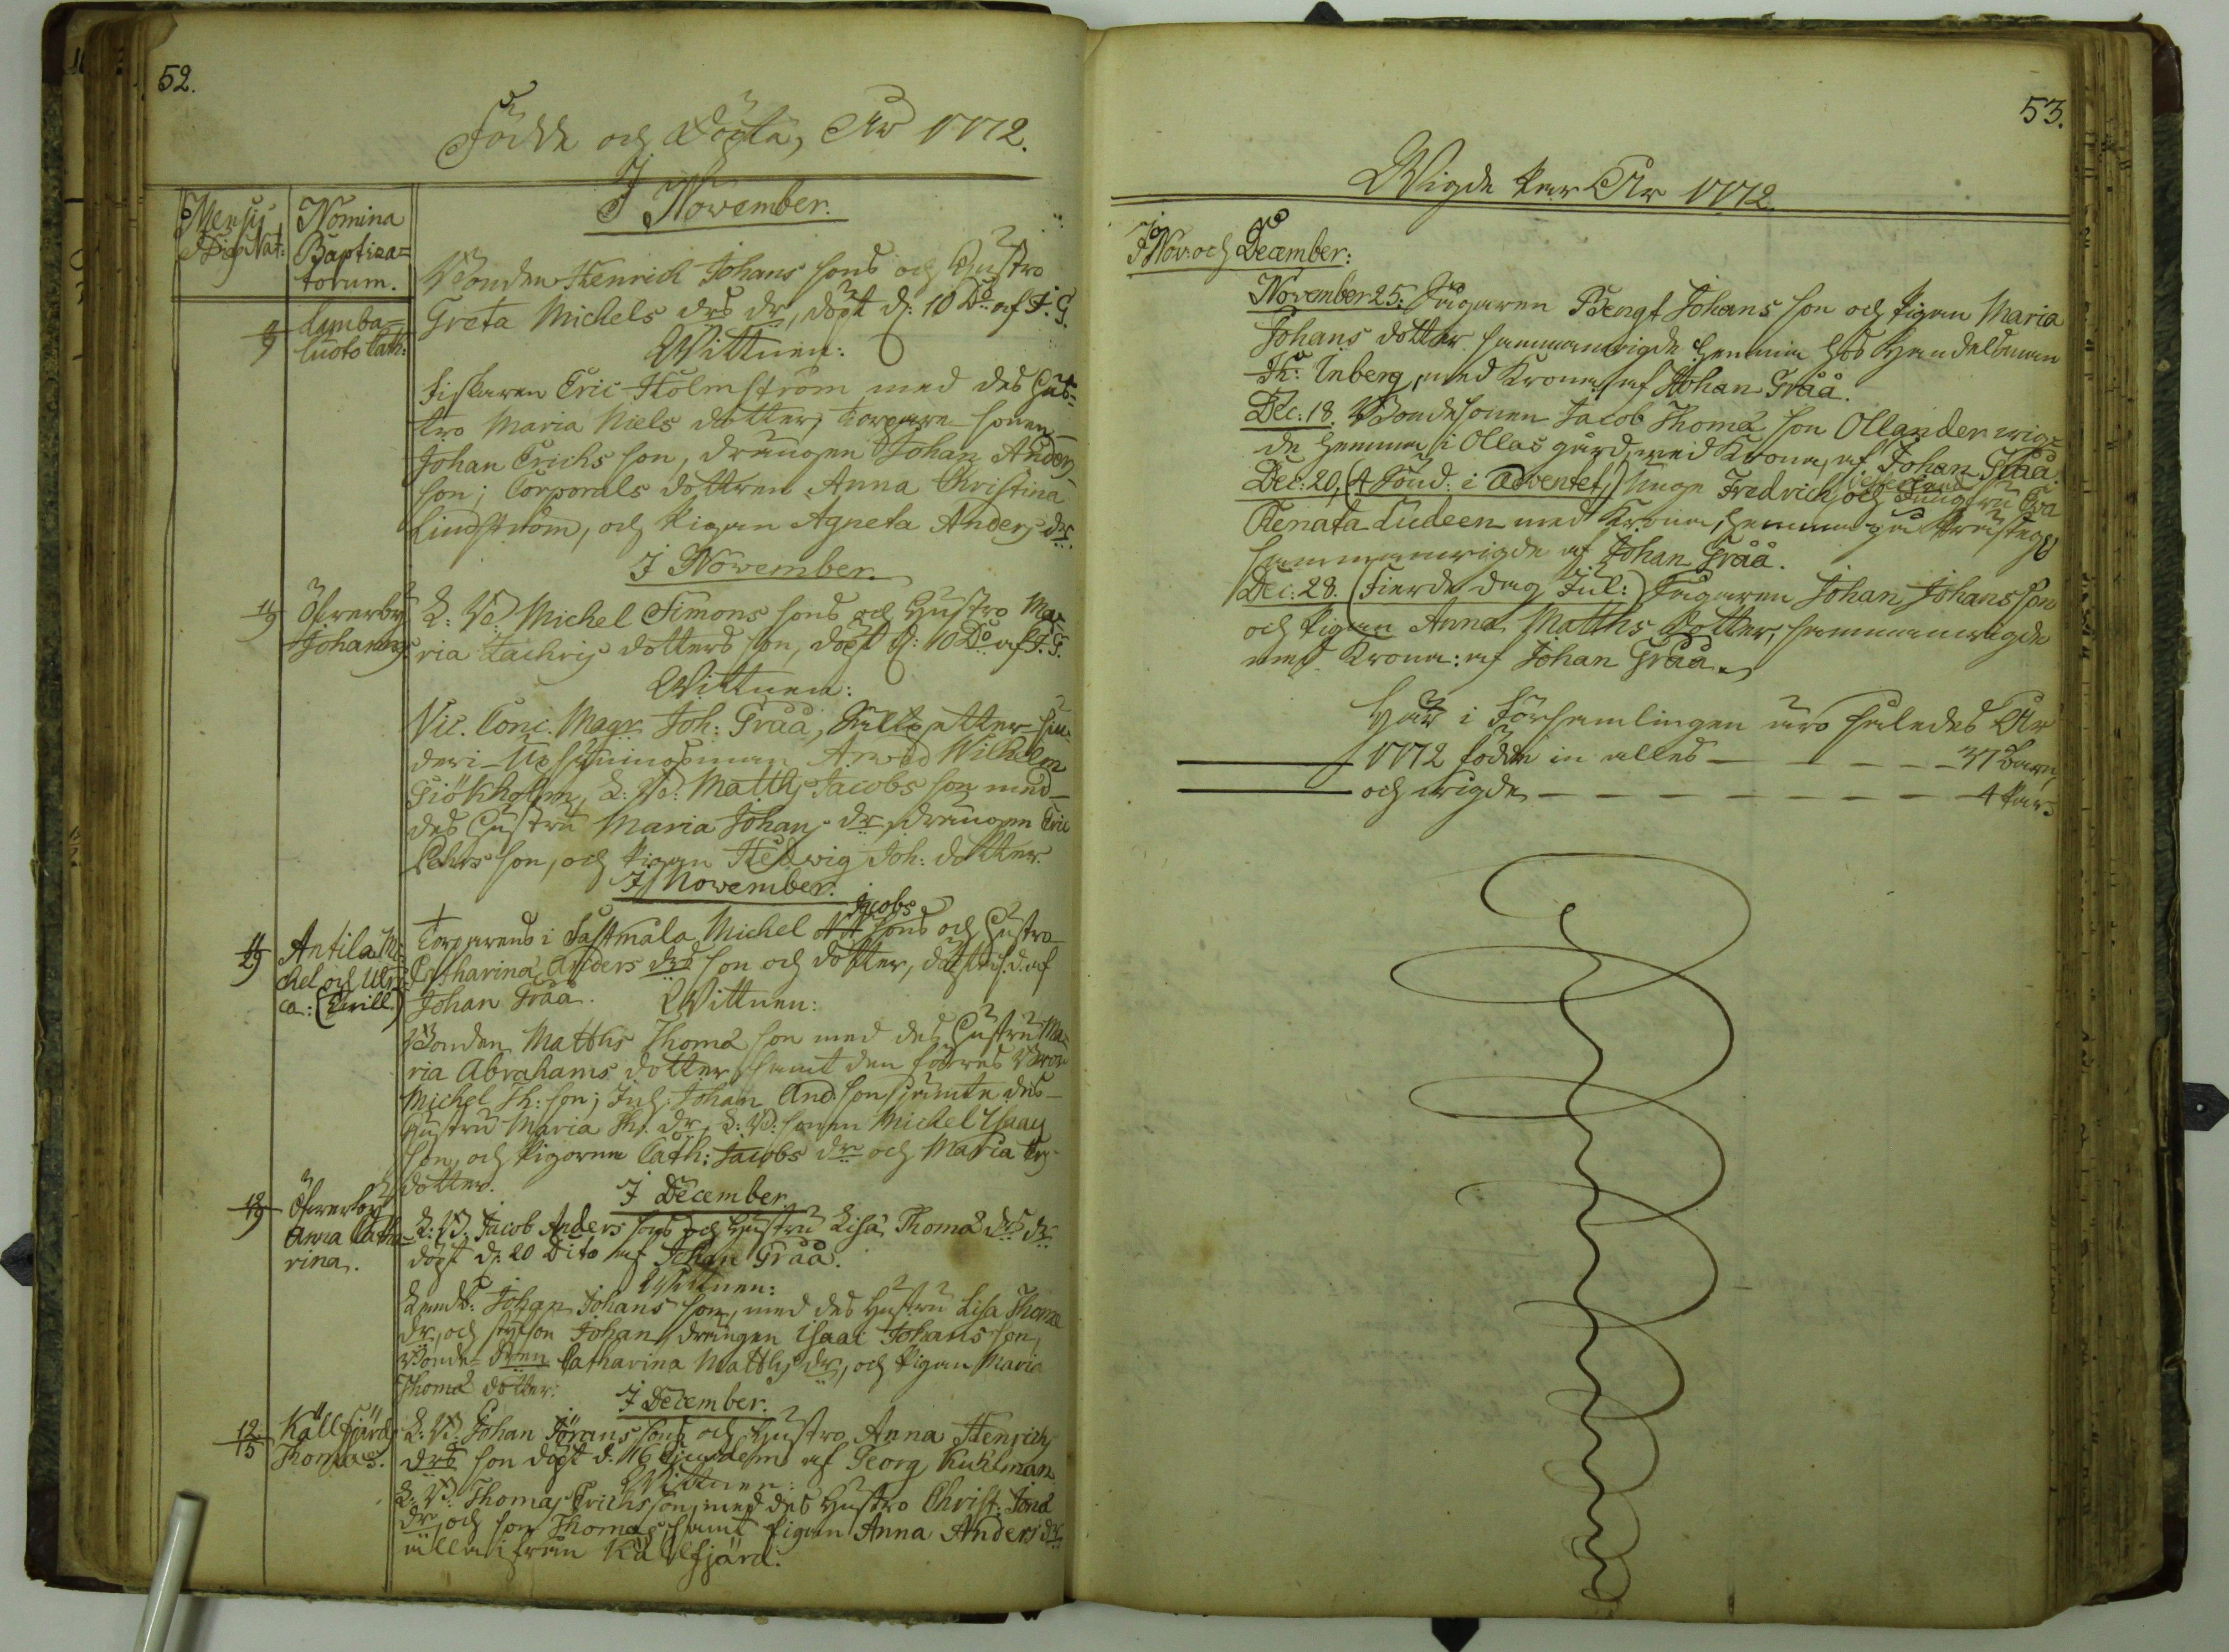 52.
Födde och Döpta, År 1772.
Mensis
Dies Nat:
Nomina
Baptiza=
torum.
I November.
Lamba=
luoto Cath:
Bonden Henrich Johans sons och Hustro
Greta Michels drs dr, döpt d: 10 Do af J. G.
Wittnen:
Fiskaren Eric Holmström med des Hus=
tro Maria Niels dotter, torpare sonen
Johan Erichs son, drängen Johan Anders
son; Corporals dottren Anna Christina
Lindström, och Pigan Agneta Anders dr.
I November.
11/9
Öfwerby
Johannes
L: B. Michel Simons sons och Hustro Ma=
ria Zachris dotters son, döpt d: 10 Do af J. G.
Wittnen:
Vic. Conc. Magr. Joh: Gråå,
Arwid Wilhelm
L: B: Matths Jacobs son med
des Hustru Maria Johans dr, drängen Eric
son, och Pigan Hedwig Joh: dotter.
I November.
11/29
Antila Mi
chel och Ulri
ca: (Twill.)
Torparens i Sastmåla Michel Jacobs sons och Hustro
Catharina Anders drs son och dotter, af
Johan Gråå. Wittnen:
Bonden Matths Thomæ son med des Hustru Ma=
ria Abrahams dotter, samt den förres Bror
Michel Th: son; Inh: Johan And. son jämte des
Hustru Maria Th. dr, L: B: sonen Michel Isaacs
son, och Pigorna Cath: Jacobs dr och Maria
dotter.
I December
12/18
Öfwerby
Anna Catha=
rina.
L: B. Jacob Anders sons och Hustru Lisa Thomæ drs dr
döpt d: 20 Dito af Johan Gråå.
Wittnen:
Johan Johans son, med des Hustru Lisa Thomæ
dr, och styfson Johan, drängen Isaac Johans son,
Bonde dren Catharina Matths dr, och Pigan Maria
Thomæ dotter.
I December.
12/15
Källfjärd
Thomas.
L: B. Johan Jörans sons och Hustro Anna Henrichs
drs son döpt d. 16 ejusdem af Georg Kuhlman.
Wittnen:
L: B. Thomas Erichs son, med des Hustro Christ: Jonæ
dr, och son Thomas, samt Pigan Anna Anders dr
alla ifrån Källfjärd.
53.
Wigde Par År 1772.
I Nov: och December:
November 25. Bengt Johans son och Pigan Maria
Johans dotter sammanwigde hemma hos Handelsman
Th: Inberg, med Krona, af Johan Gråå.
Dec: 18. Bondesonen Jacob Thomæ son Ollander wig=
de hemma i Ollas gård, med Krona, af Johan Gråå.
Dec: 20, (4 Sönd: i Adventet,) Unge Fredrich och Jungfru Eva
Renata Ludeen med Krona, hemma på Prästegd
sammanwigde af Johan Gråå.
Dec: 28. (Fierde dag Jul:) Johan Johans son
och Pigan Anna Matths dotter, sammanwigde
med Krona: af Johan Gråå.
Här i Församlingen äro således År
1772 födde in alles 37 Barn,
och wigde 4 Par.